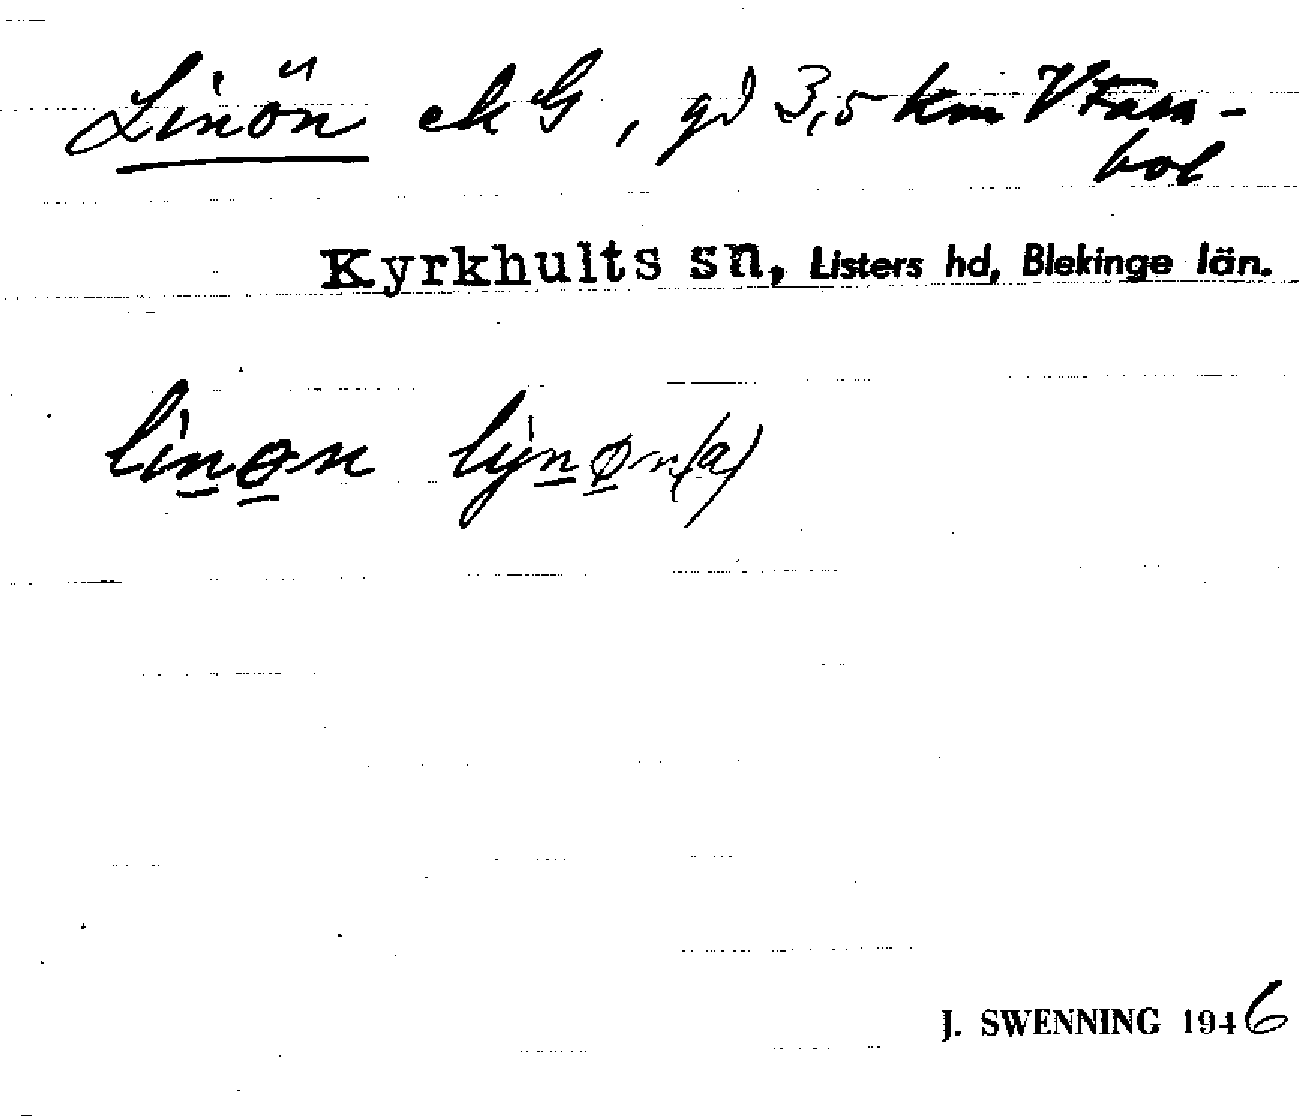 Linön ek G, gd 3,5 km V Farn-
bol
Kyrkhults sn, Listers hd, Blekinge län.
linøn lijnøn(a)
J. SWENNING 1946